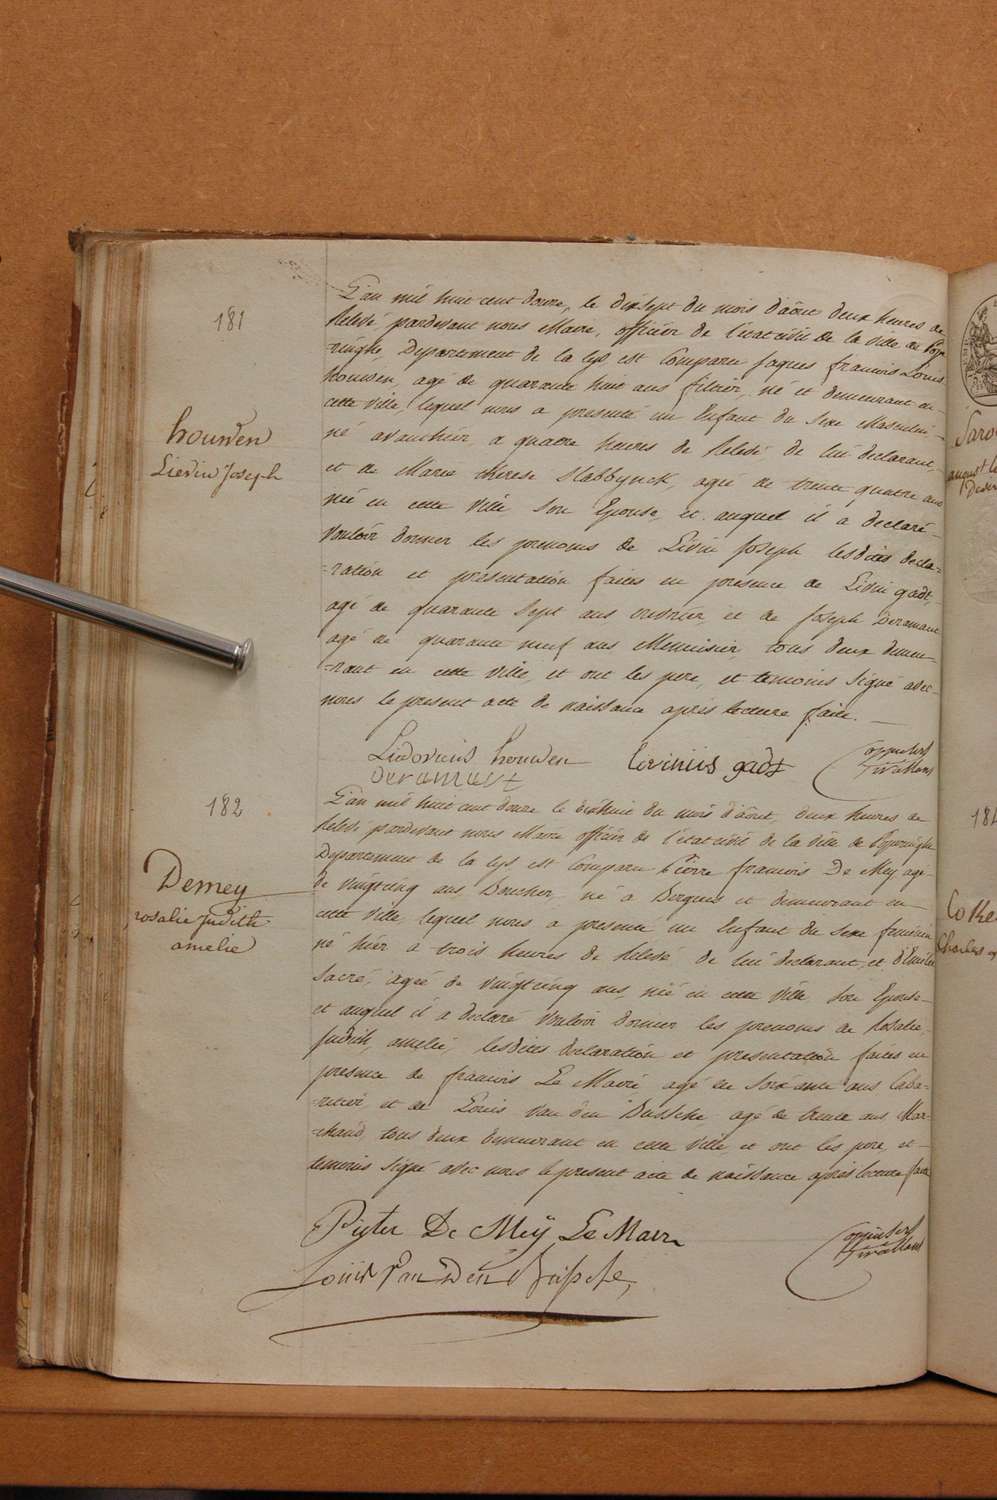 181
houwen
Lievin Joseph
L'an mil huit cent douze, le dixsept du mois d'août deux heures de
Relevé pardevant nous Maire, officier de l'etat civil de la ville de Pope
ringhe, Departement de la Lys est Comparu Jaques francois Louis
houwen, agé de quarante huit ans filtier, né et demeurant en
cette ville, lequel nous a presenté un Enfant du Sexe Masculin
né avanthier a quatre heures de Relevé, de lui declarant,
et de Marie therese Slabbynck, agée de trente quatre ans
née en cette ville Son Epouse, et auquel il a declaré
Vouloir donner les prenoms de Livin Joseph lesdites decla=
=ration et presentation faites en presence de Livin gadt,
agé de quarante Sept ans ouvrier, et de Joseph Deramaut
agé de quarante neuf ans Menuisier, tous deux demeu=
=rant en cette Ville, et ont les pere, et temoins Signé avec
nous le present acte de naissance après lecture faite.
Ludovicus houwen Lovinus gadt
deramaut
182
Demey
rosalie Judith
amelie
L'an mil huit cent douze le dixhuit du mois d'août, deux heures de
Relevé pardevant nous Maire officier de l'etat civil de la ville de Poperinghe
Departement de la Lys est Comparu Pierre francois De Mey agé
de vingtcinq ans, Boucher, né a Bergues et demeurant en
cette ville, lequel nous a presenté un Enfant du Sexe feminin
né hier a trois heures de Relevé de lui declarant, et d'Emilie
Sacré, agée de vingtcinq ans, née en cette Ville Son Epouse
et auquel il a declaré Vouloir donner les prenoms de Rosalie,
Judith, amelie, lesdites declaration et presentation faites en
presence de francois Le Maire agé de Soixante ans Caba=
=retier et de Louis Van den Bussche agé de trente ans, Mar=
=chand, tous deux demeurant en cette Ville et ont les pere, et
temoins Signé avec nous le present acte de naissance après lecture faite
Pieter De Meÿ Le Maire
Louis Van Den Bussche,